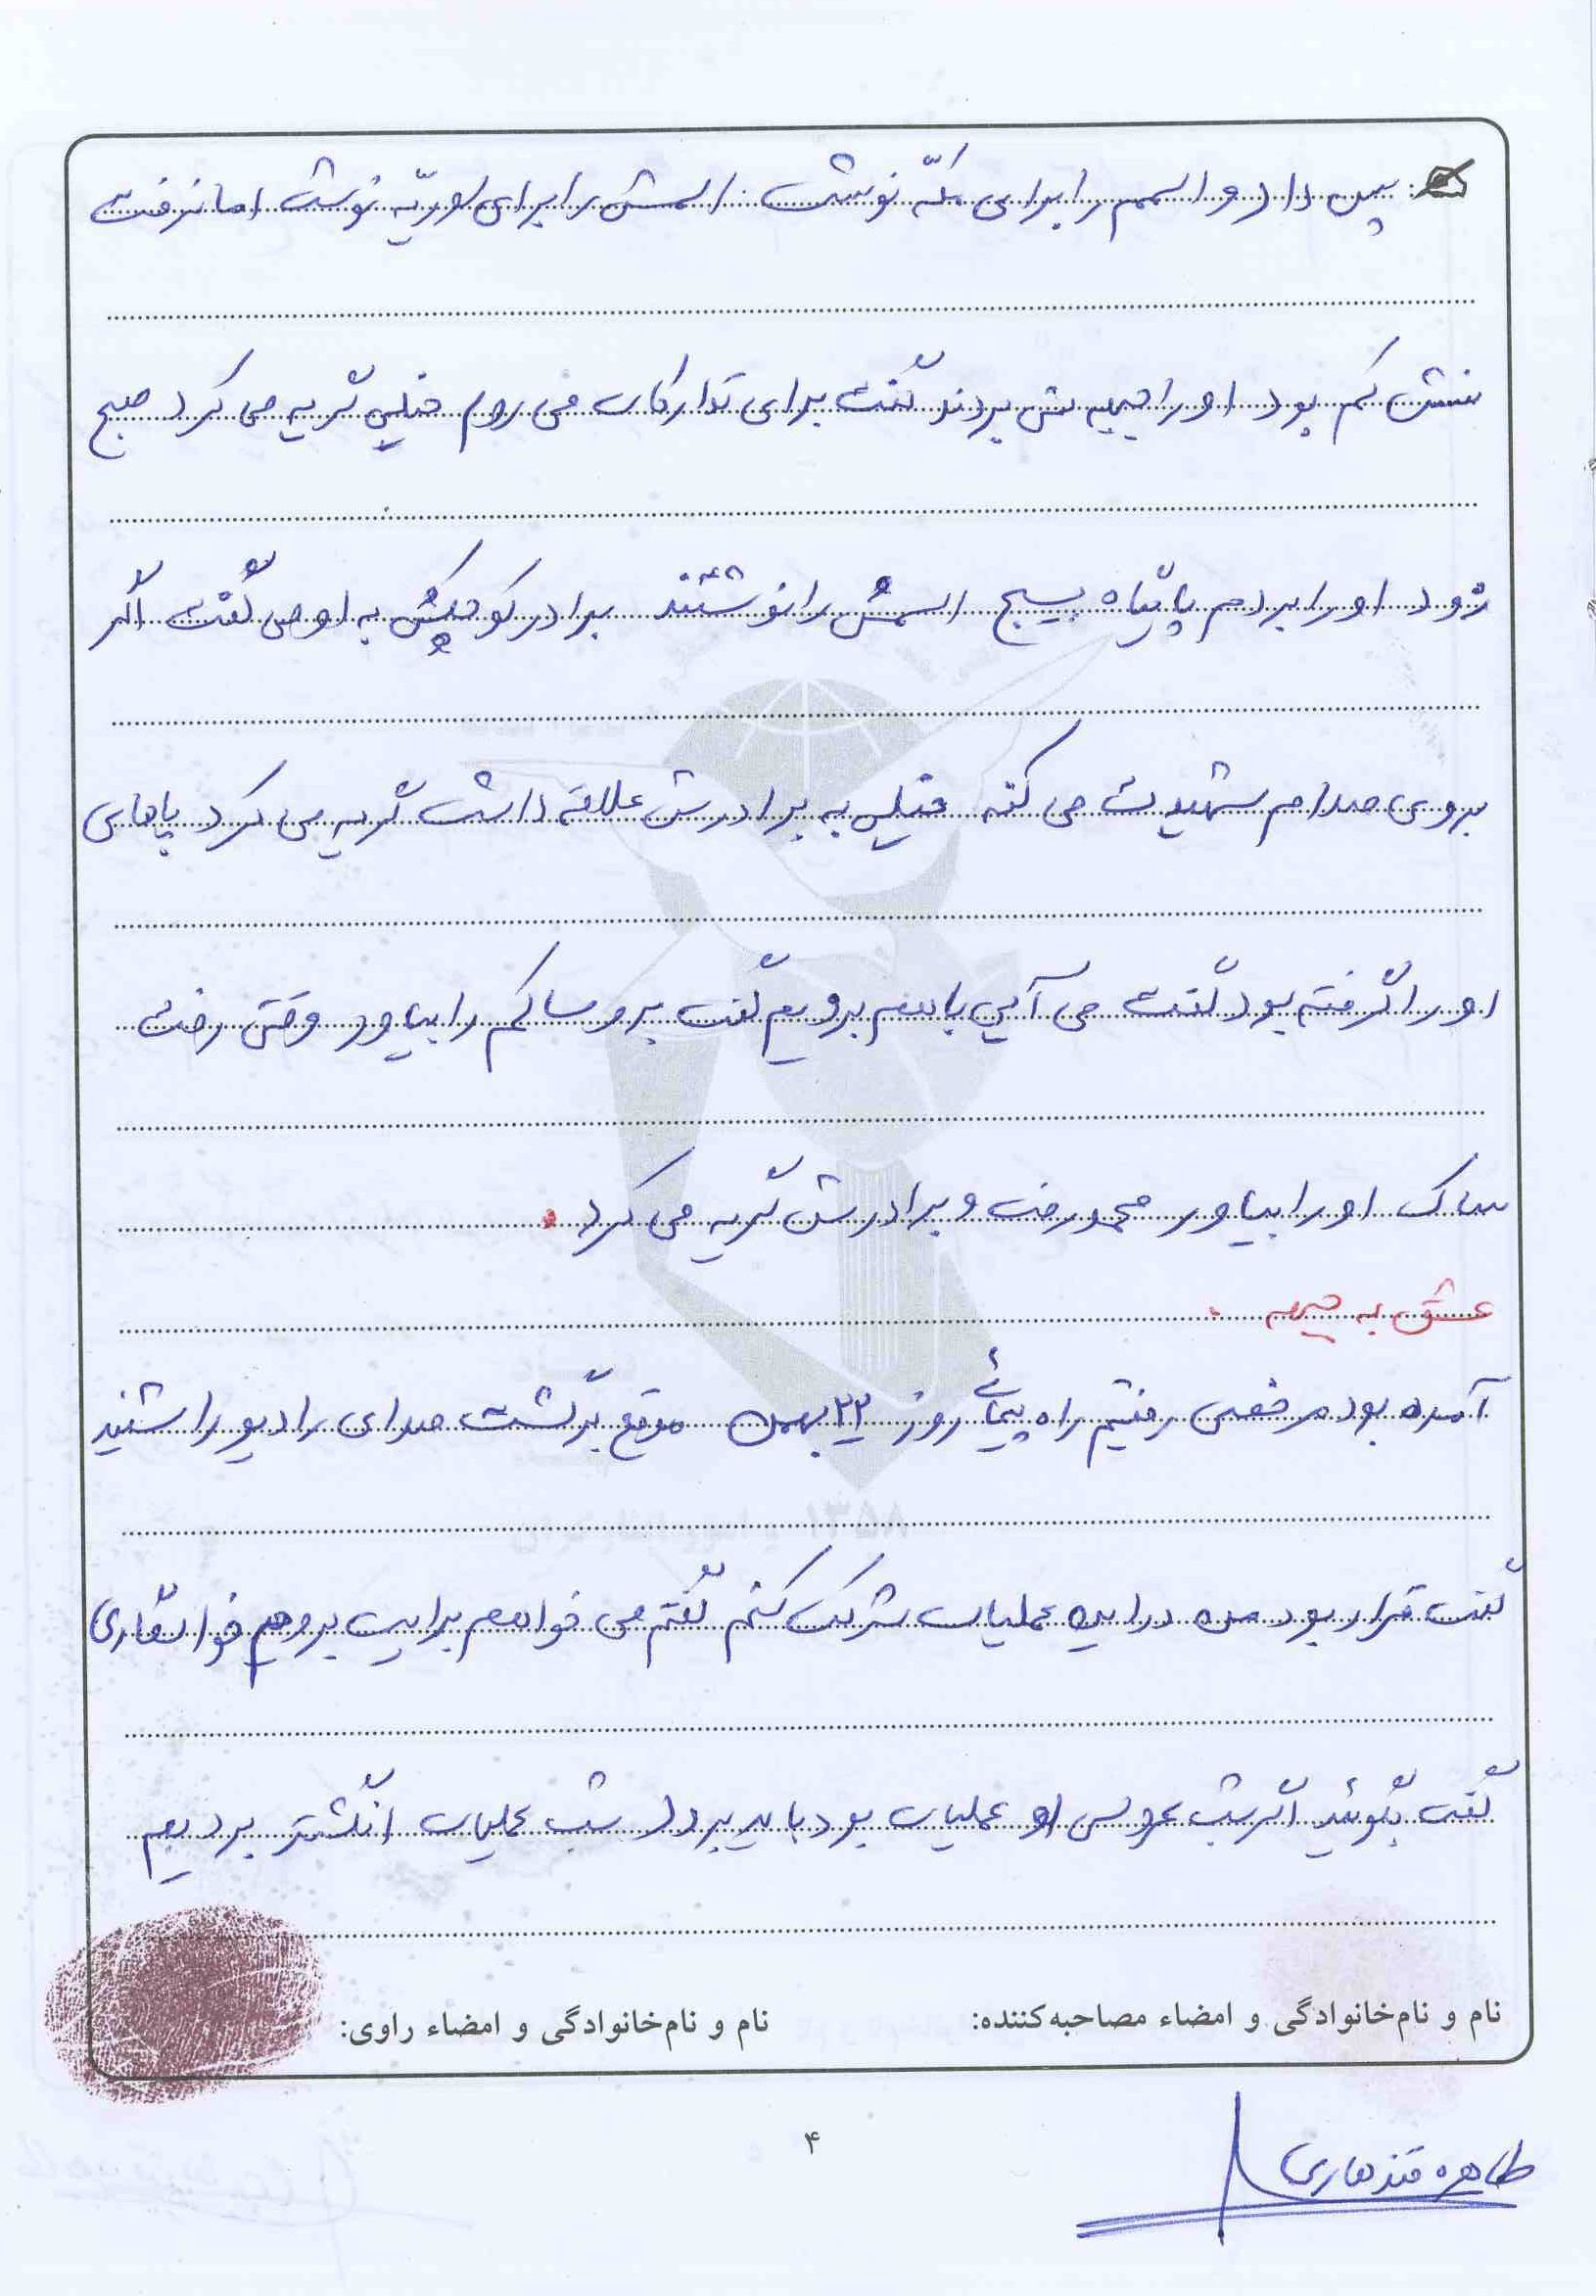 پس داد و اسمم را برای مکّه نوشت. اسمش را برای سوریّه نوشت اما نرفت
سنش کم بود او را جبهه نمی بردند گفت برای تدارکات می روم خیلی گریه می کرد صبح
زود او را بردم پایگاه بسیج اسمش را نوشتند برادر کوچکش به او می گفت اگر
بروی صدام شهیدت می کنه خیلی به برادرش علاقه داشت گریه می کرد پاهای
او را گرفته بود گفت می آیی با هم برویم گفت برو ساکم را بیاور وقتی رفت
ساک او را بیاورد محمد رفت و برادرش گریه می کرد.
عشق به جبهه.
آمده بود مرخصی رفتیم راه پیمائی روز ۲۲ بهمن موقع برگشت صدای رادیو را شنید
گفت قرار بود من در این عملیات شرکت کنم گفتم می خواهم برایت بروم خواستگاری
گفت بگوئید اگر شب عروسی او عملیات بود باید برود شب عملیات انگشتر بردیم
نام و نام‌خانوادگی و امضاء مصاحبه‌کننده:
نام و نام‌خانوادگی و امضاء راوی:
طاهره قندهاری
۴
۱۳۵۸